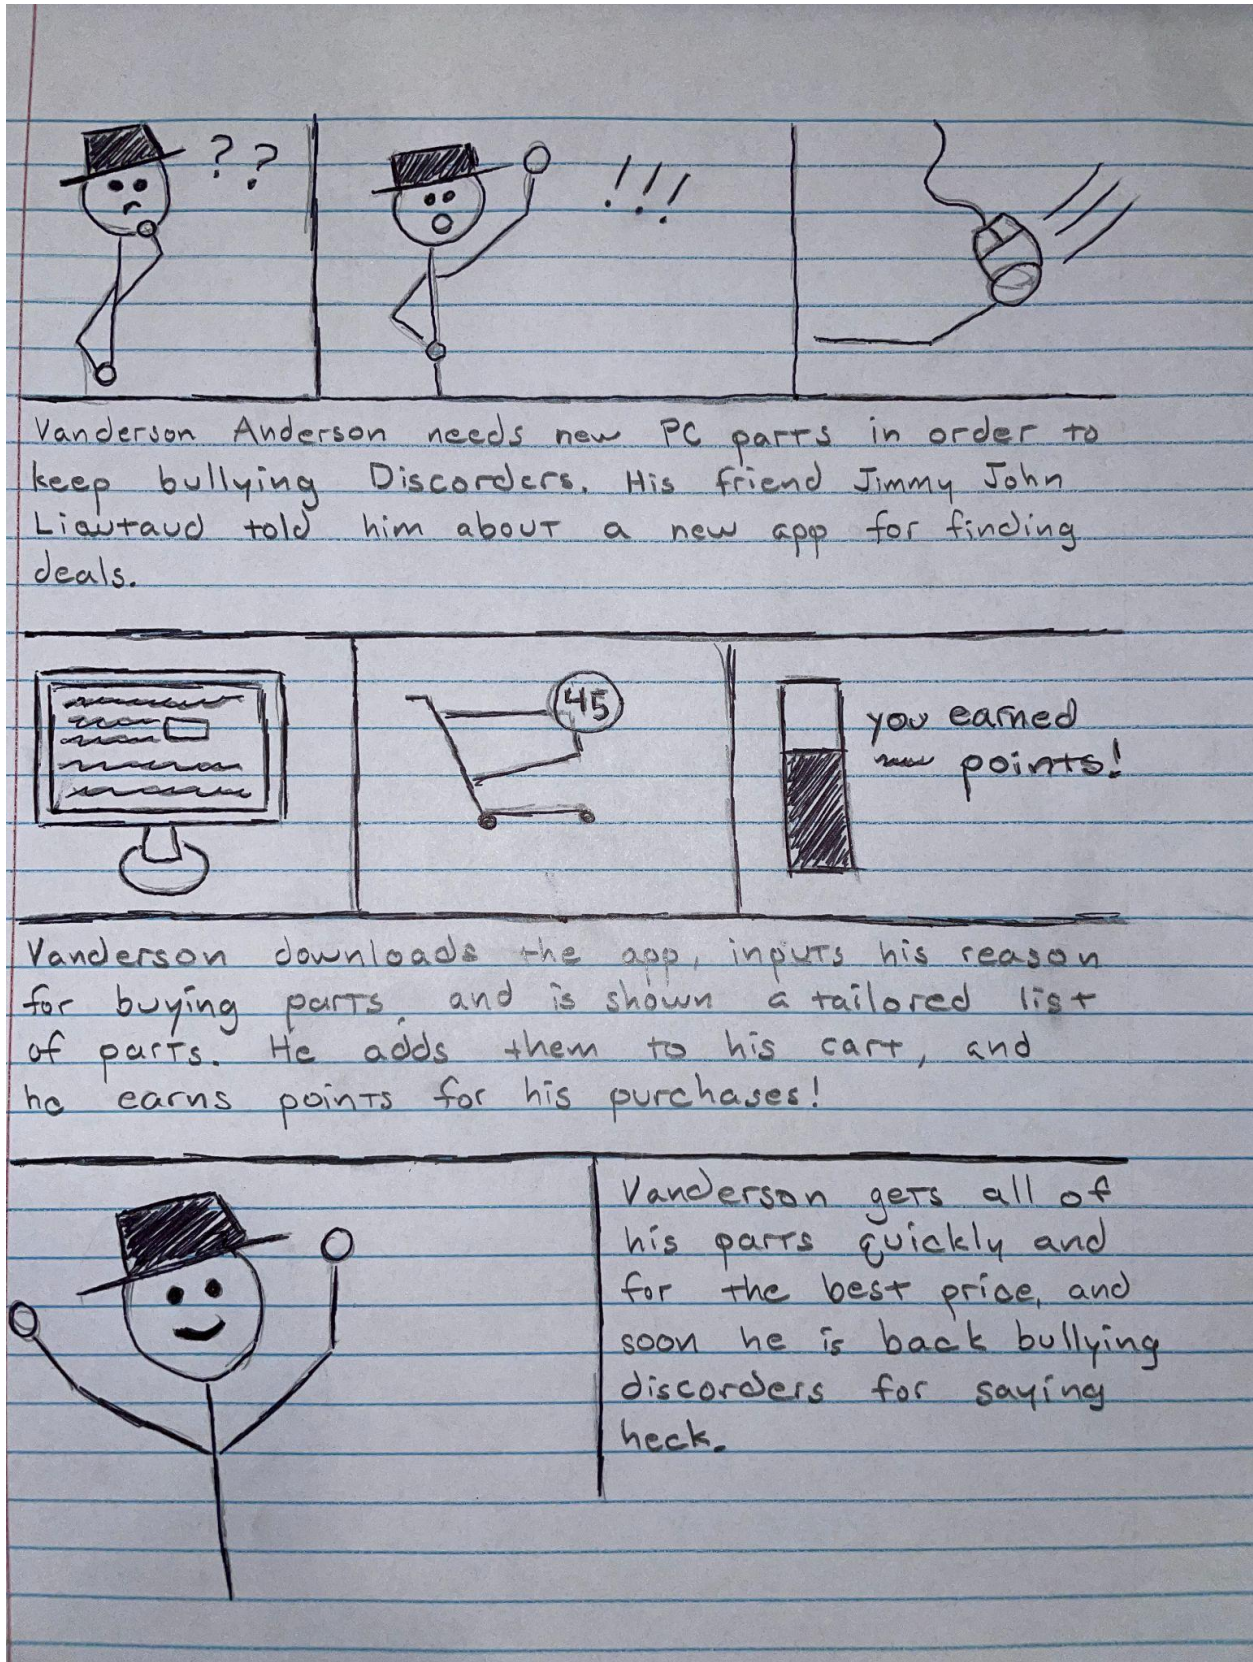 ??
!!!
Vanderson Anderson needs new PC parts in order to
keep bullying Discorders. His friend Jimmy John
Liautaud told him about a new app for finding
deals.
45
you earned
points!
Vanderson downloads the app, inputs his reason
for buying parts, and is shown a tailored list
of parts. He adds them to his cart, and
he earns points for his purchases!
Vanderson gets all of
his parts quickly and
for the best price, and
soon he is back bullying
discorders for saying
heck.